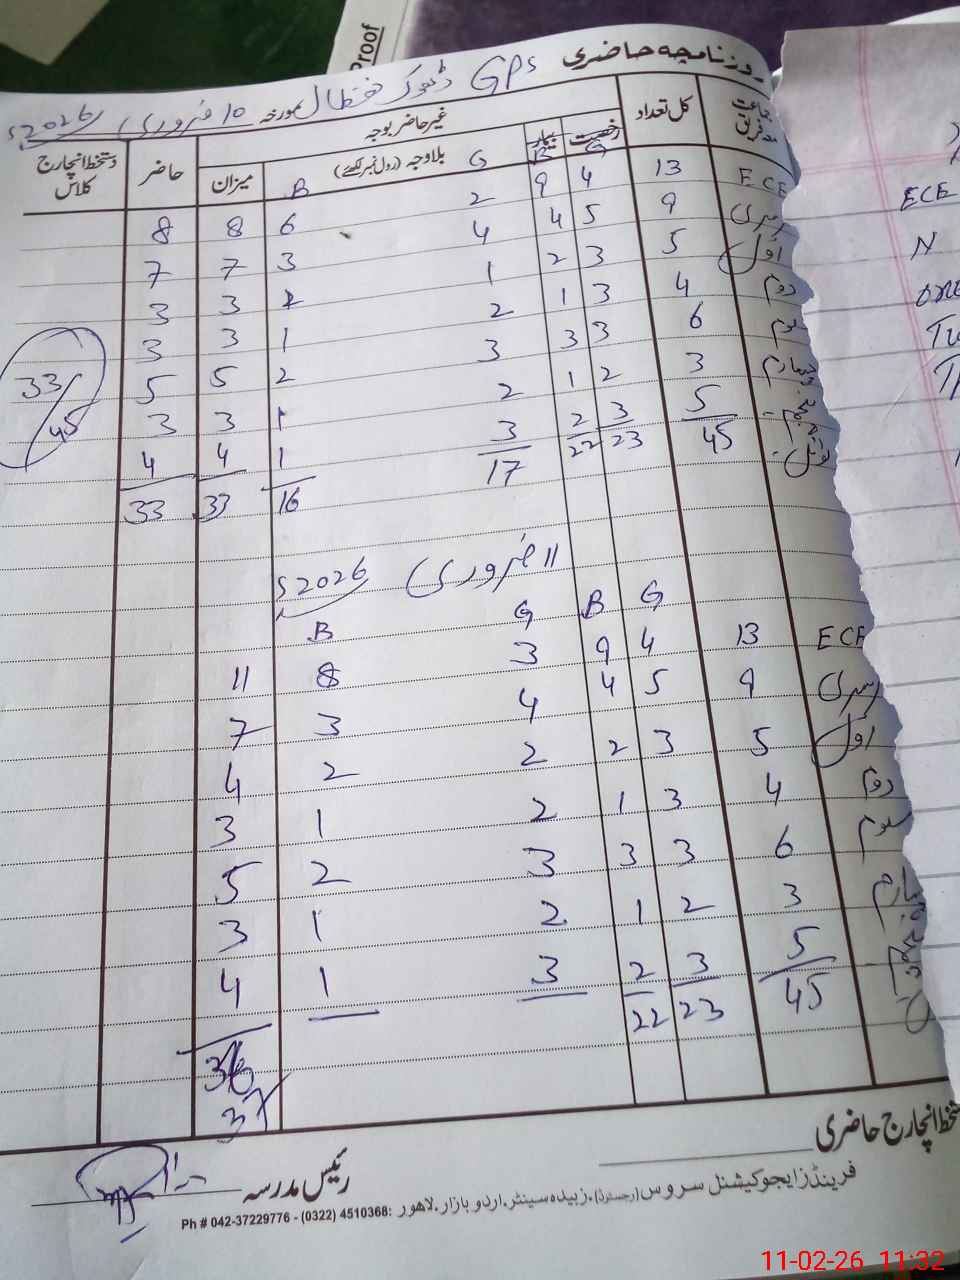 Proof
روزنامچہ حاضری GPS ڈھوک
مورخہ 10 فروری 2026ء
جماعت مع فریق کل تعداد غیر حاضر بوجہ حاضر دستخط انچارج کلاس
رخصت بیمار بلاوجہ (رول نمبر لکھئے) میزان
G B G B
ECE 13 4 9 2 6 8 8
نرسری 9 5 4 4 3 7 7
اول 5 3 2 1 2 3 3
دوم 4 3 1 2 1 3 3
سوم 6 3 3 3 2 5 5
چہارم 3 2 1 2 1 3 3
پنجم 5 3 2 3 1 4 4
ٹوٹل 45 23 22 17 16 33 33
33/45
11 فروری 2026ء
G B G B
ECE 13 4 9 3 8 11
نرسری 9 5 4 4 3 7
اول 5 3 2 2 2 4
دوم 4 3 1 2 1 3
سوم 6 3 3 3 2 5
چہارم 3 2 1 2 1 3
پنجم 5 3 2 3 1 4
45 23 22 36
37
دستخط انچارج حاضری
رئیس مدرسہ
فرینڈز ایجوکیشنل سروس (رجسٹرڈ)، زبیدہ سینٹر، اردو بازار، لاہور
Ph # 042-37229776 - (0322) 4510368:
ECE
N
11-02-26 11:32